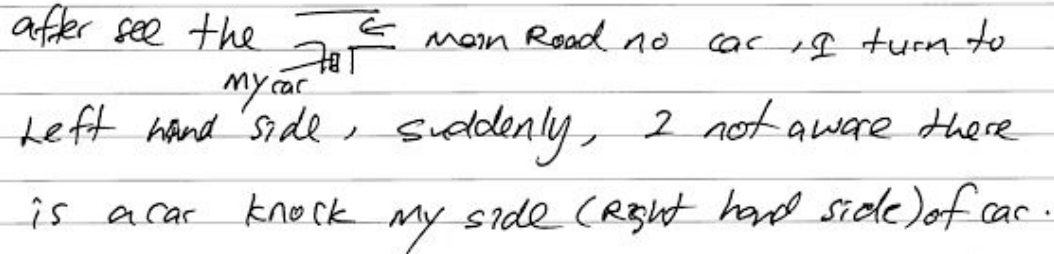 after see the main Road no car, I turn to
my car
Left hand side, suddenly, I not aware there
is a car knock my side (Right hand side) of car.